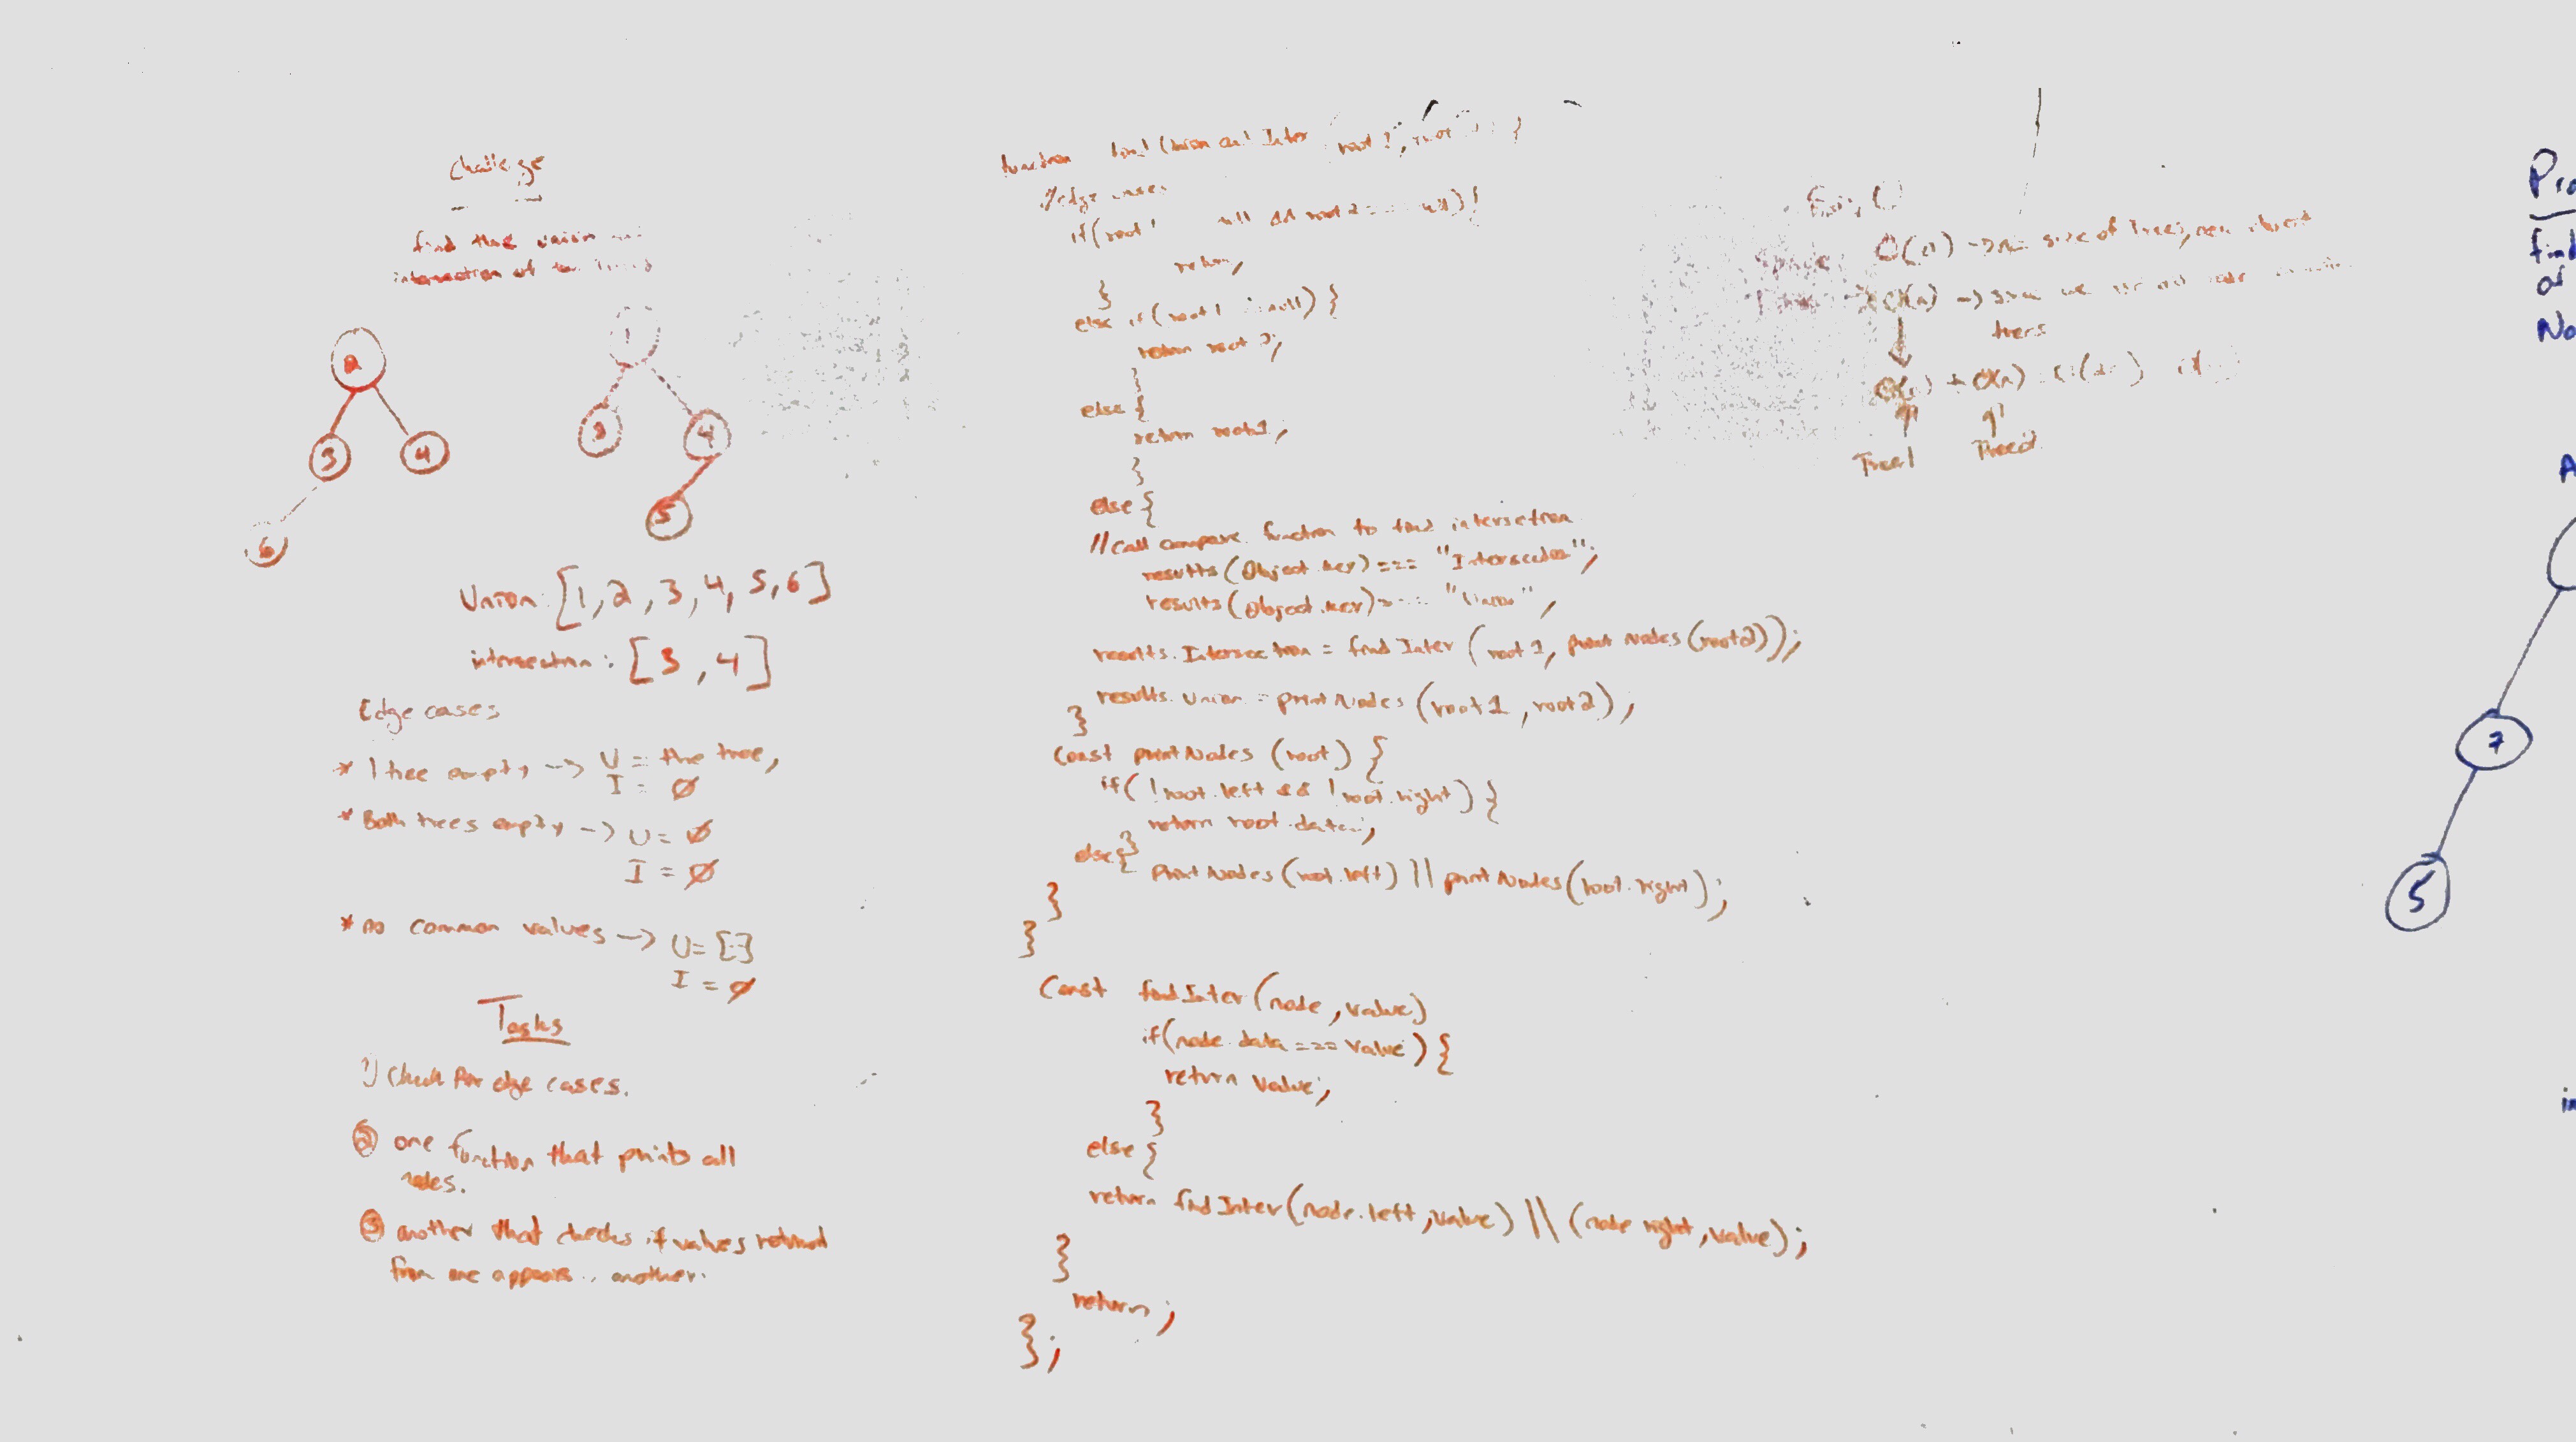 Challenge
find the union
intersection of
2
3
4
6
1
3
4
5
Union: [1,2,3,4,5,6]
intersection: [3,4]
Edge cases
* 1 tree empty --> U = the tree,
I = ∅
* Both trees empty --> U = ∅
I = ∅
* no common values --> U = [-]
I = ∅
Tasks
1) Check for edge cases.
② one function that prints all
nodes.
③ another that checks if values returned
from one appears another.
function find Union and Inter root 1, root }
//edge cases
if(root1 null && root2 === null){
return;
}
else if(root1 null) }
return root 2;
}
else {
return root1;
}
else {
// Call compare function to find intersection
results(Object.key) === "Intersection";
results(Object.key) === "Union";
results.Intersection = findInter (root1, printNodes(root2));
results.Union = printNodes (root1, root2);
}
Const printNodes (root) {
if( !root.left && !root.right) {
return root.data;
}
else {
PrintNodes(root.left) || printNodes(root.right);
}
}
Const findInter(node, value)
if(node.data === value) {
return value;
}
else {
return findInter(node.left, value) || (node right, value);
}
return;
};
Space O(n) -> n = size of Trees, new object
O(n) -> since we
trees
O(n) + O(n)
Tree1
Tree2
Pro
find
of
No
A
7
5
in